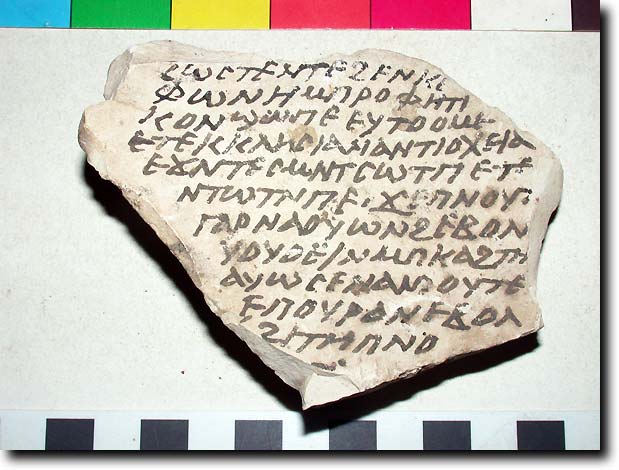 ϩⲱⲥⲧⲉⲛⲧⲉϩⲉⲛⲕⲉ
ⲫⲱⲛⲏⲙⲡⲣⲟⲫⲏⲧⲓ
ⲕⲟⲛϣⲱⲡⲉⲉⲩⲧⲟⲟⲙⲉ
ⲉⲧⲉⲕⲕⲗⲏⲥⲓⲁⲛⲁⲛⲧⲓⲟⲭⲉⲓⲁ
ⲉϫⲛⲧⲉⲥⲙⲛⲧⲥⲱⲧⲡⲉⲧⲉ
ⲛⲧⲱⲧⲛⲡⲉ· ϫⲉⲡⲛⲟⲩⲧ
ⲅⲁⲣⲛⲁⲟⲩⲱⲛϩⲉⲃⲟⲗ
ⲩⲟⲩⲟⲉⲓⲛⲙⲡⲕⲁϩⲧⲏ
ⲁⲩⲱⲥⲉⲛⲁⲙⲟⲩⲧⲉ
ⲉⲡⲟⲩⲣⲁⲛⲉⲃⲟⲗ
ϩⲓⲧⲙⲡⲛⲟ